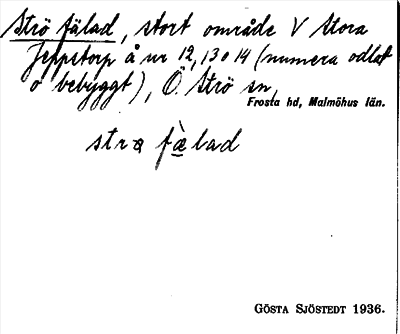 Strö fälad, stort område V Stora
Jeppstorp å nr 12, 13 o 14 (numera odlat
o bebyggt), Ö. Strö sn,
Frosta hd, Malmöhus län.
strø fæ̀lad
GÖSTA SJÖSTEDT 1936.